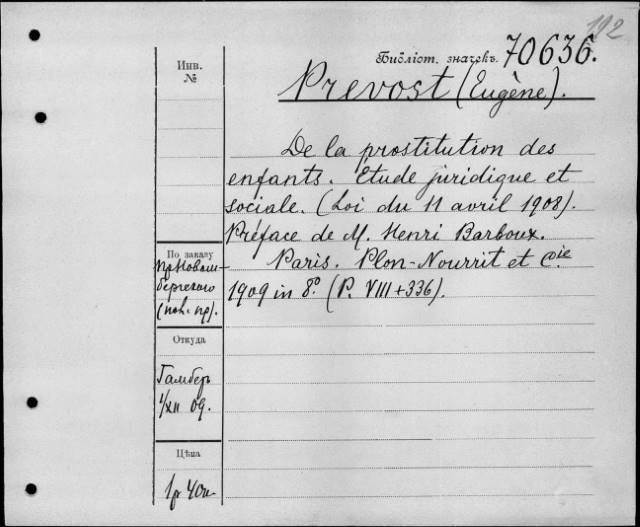 192
Библіот. значекъ 70636.
Инв.
№
Prevost (Eugène).
De la prostitution des
enfants. Étude juridique et
sociale. (Loi du 11 avril 1908).
Préface de M. Henri Barboux.
Paris. Plon-Nourrit et Cie
1909 in 8º. (P. VIII+336).
По заказу
Откуда
Гамберъ
1/XII 09.
Цѣна
1р 40к